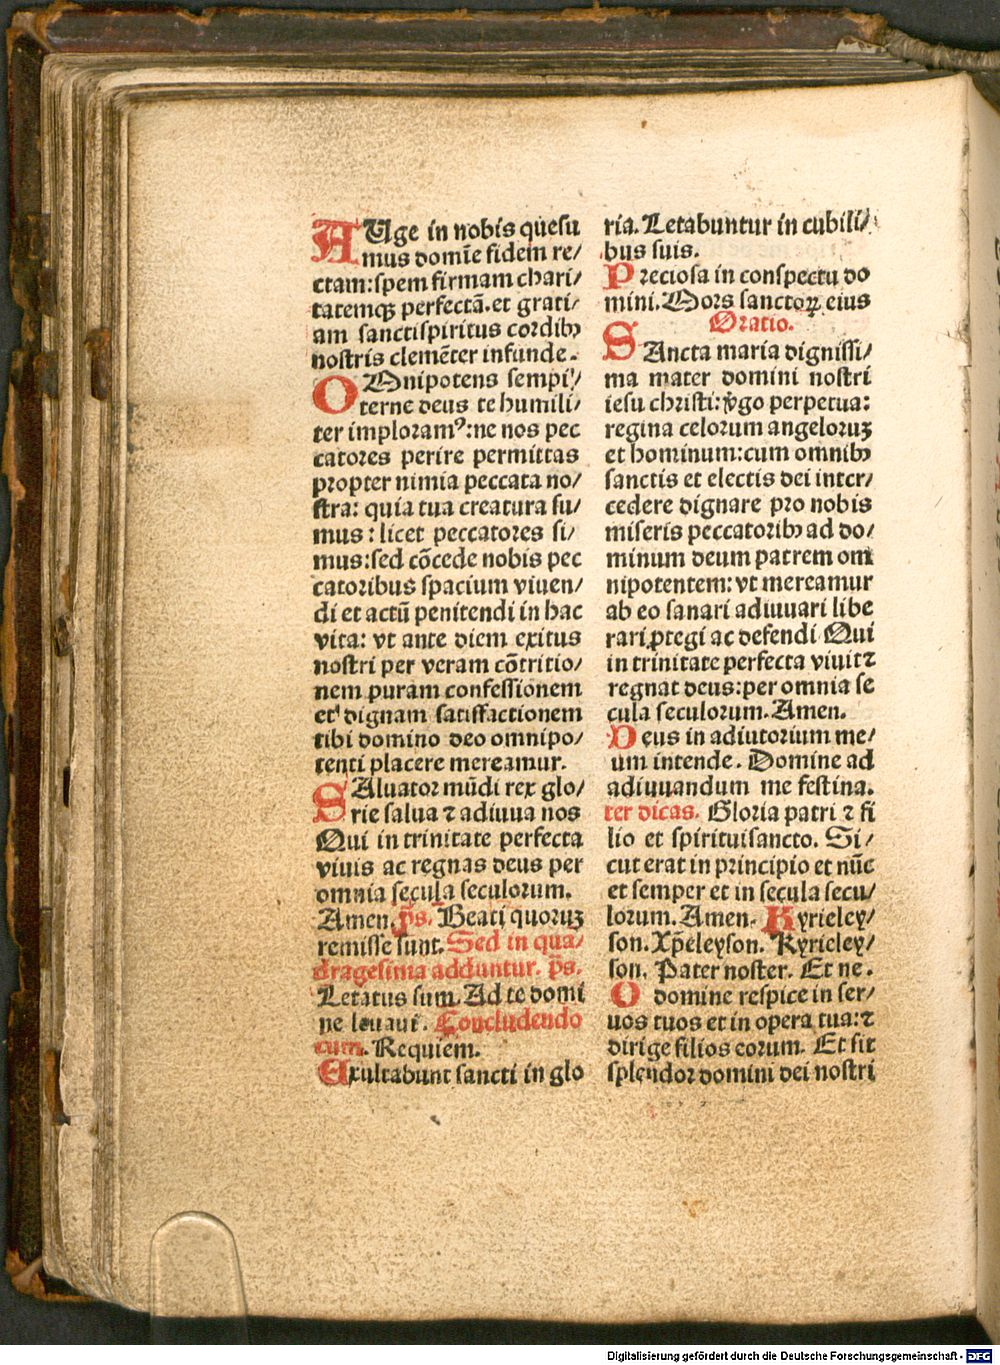 AUge in nobis quesu
mus domīe fidem re/
ctam:spem firmam chari/
tatemqꝫ perfectā.et grati/
am sanctispiritus cordibꝰ
nostris clemēter infunde.
OMnipotens sempi/
terne deus te humili/
ter imploramꝰ:ne nos pec
catores perire permittas
propter nimia peccata no/
stra: quia tua creatura su/
mus: licet peccatores si/
mus:sed cōcede nobis pec
catoribus spacium viuen/
di et actū penitendi in hac
vita: vt ante diem exitus
nostri per veram cōtritio/
nem puram confessionem
et dignam satisfactionem
tibi domino deo omnipo/
tenti placere mereamur.
SAluator mūdi rex glo/
rie salua ⁊ adiuua nos
Qui in trinitate perfecta
viuis ac regnas deus per
omnia secula seculorum.
Amen. p̄s. Beati quoruꝫ
remisse sunt. Sed in qua/
dragesima adduntur. p̄s.
Letatus sum. Ad te domi
ne leuaui. Concludendo
cum. Requiem.
Exultabunt sancti in glo
ria. Letabuntur in cubili/
bus suis.
Preciosa in conspectu do
mini. Mors sanctoꝝ eius
Oratio.
SAncta maria dignissi/
ma mater domini nostri
iesu christi: v̄go perpetua:
regina celorum angeloruꝫ
et hominum:cum omnibꝰ
sanctis et electis dei inter/
cedere dignare pro nobis
miseris peccatoribꝰ ad do/
minum deum patrem om
nipotentem: vt mereamur
ab eo sanari adiuuari libe
rari ꝓtegi ac defendi Qui
in trinitate perfecta viuit ⁊
regnat deus:per omnia se
cula seculorum. Amen.
Deus in adiutorium me/
um intende. Domine ad
adiuuandum me festina.
ter dicas. Gloria patri ⁊ fi
lio et spirituisancto. Si/
cut erat in principio et nūc
et semper et in secula secu/
lorum. Amen. Kyrieley/
son. Xp̄eleyson. Kyrieley/
son. Pater noster. Et ne.
O domine respice in ser/
uos tuos et in opera tua: ⁊
dirige filios eorum. Et sit
splendor domini dei nostri
Digitalisierung gefördert durch die Deutsche Forschungsgemeinschaft - DFG